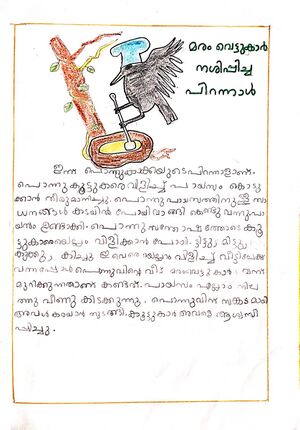 മരം വെട്ടുകാർ
നശിപ്പിച്ച
പിറന്നാൾ
ഇന്ന് പൊന്നുകാക്കയുടെ പിറന്നാളാണ്.
പൊന്നു കൂട്ടുകാരെ വിളിച്ച് പായസം കൊടു
ക്കാൻ തീരുമാനിച്ചു. പൊന്നു പായസത്തിനുള്ള സാ
ധനങ്ങൾ കടയിൽ പോയി വാങ്ങി കൊണ്ടു വന്നു പാ
യസം ഉണ്ടാക്കി. പൊന്നു സന്തോഷത്തോടെ കൂ
ട്ടുകാരെയെല്ലാം വിളിക്കാൻ പോയി. ട്ടിട്ടു, മിട്ടു,
കുഞ്ഞു, കിച്ചു ഇവരെയെല്ലാം വിളിച്ച് വീട്ടിലേക്ക്
വന്നപ്പോൾ പൊന്നുവിന്റെ വീട് മരംവെട്ടുകാർ വന്ന്
മുറിക്കുന്നതാണ് കണ്ടത്. പായസം എല്ലാം നില
ത്തു വീണു കിടക്കുന്നു. പൊന്നുവിന് സങ്കടമായി
അവൾ കരയാൻ തുടങ്ങി. കൂട്ടുകാർ അവളെ ആശ്വസി
പ്പിച്ചു.